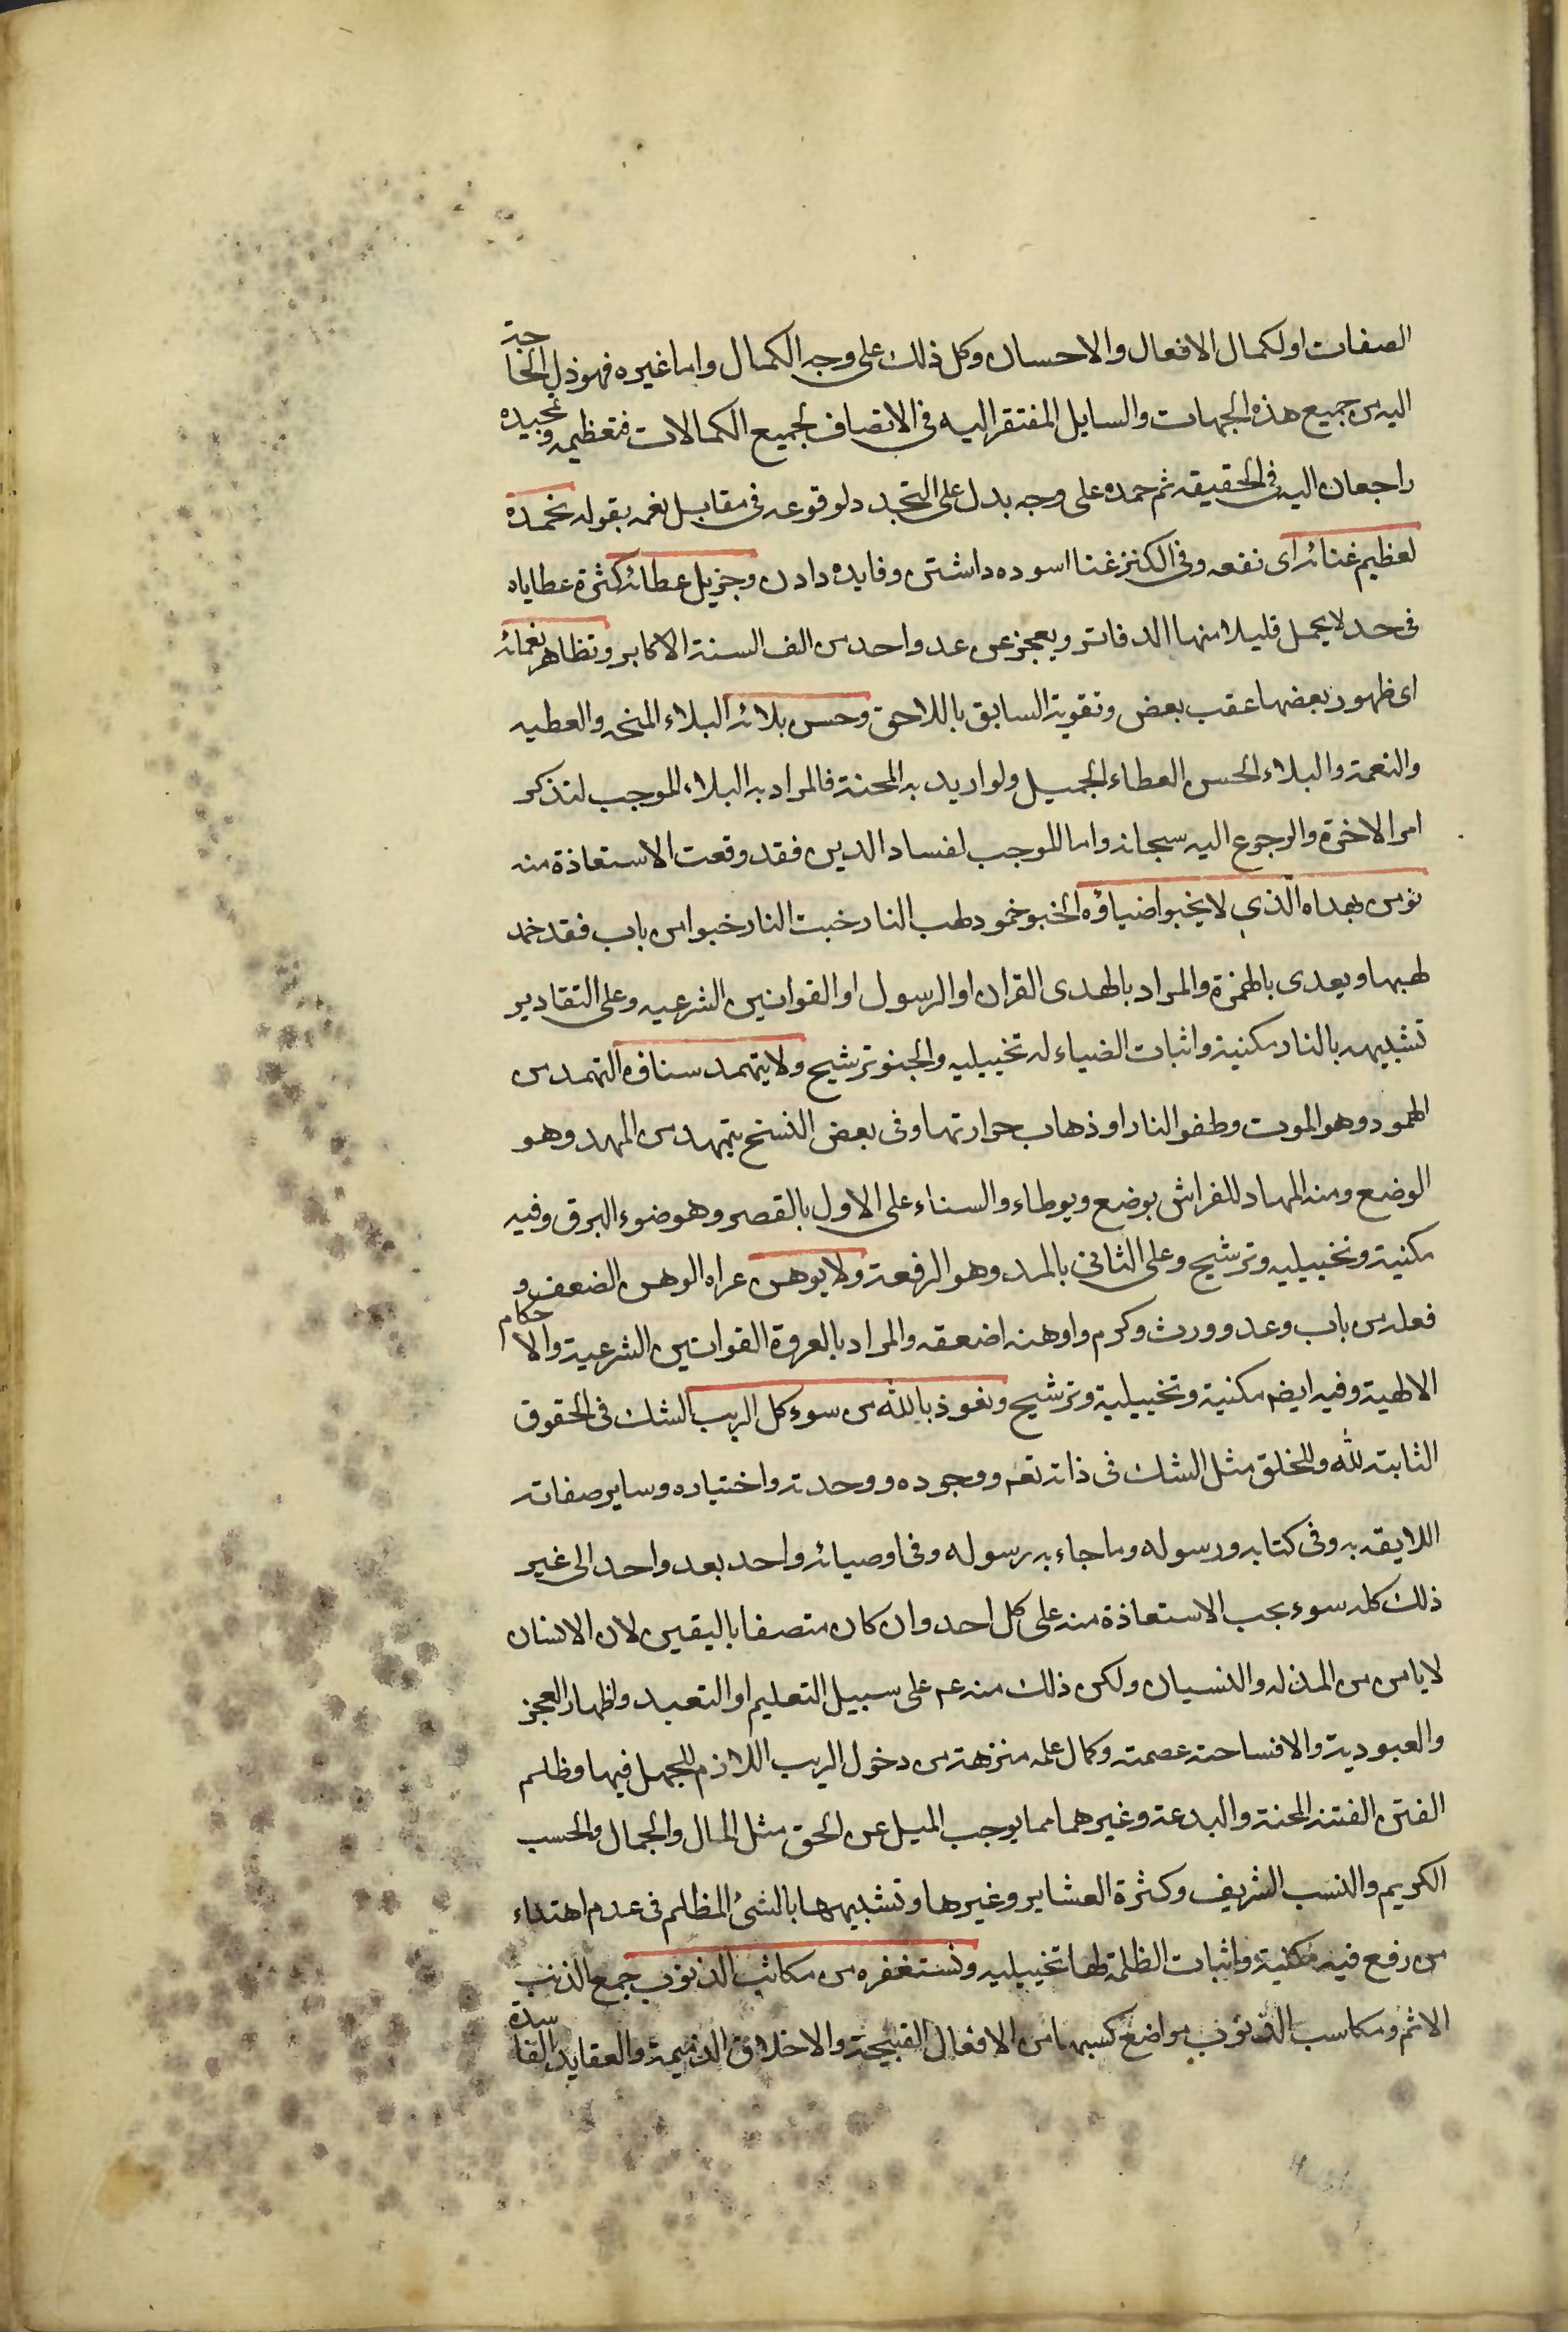 الصفات او لكمال الافعال والاحسان وكل ذلك على وجه الكمال واما غيره فهو ذل الحاجة
اليه من جميع هذه الجهات والسايل المفتقر اليه فى الاتصاف بجميع الكمالات فتعظيمه وتمجيده
راجعان اليه فى الحقيقه ثم حمده على وجه يدل على التجدد لوقوعه فى مقابل نعمه بقوله نحمده
لعظيم غنائه اى نفعه وفى الكنز غنا اسوده داشتن وفايده دادن وجزيل عطائه كثرة عطاياه
فى حد لا يحمل قليلا منها الدفاتر ويعجز عن عد واحد من الف السنة الاكابر وتظاهر نعمائه
اى ظهور بعضها عقب بعض وتقوية السابق باللاحق وحسن بلائه البلاء المنحه والعطيه
والنعمة والبلاء الحسن العطاء الجميل ولو اريد به المحنة فالمراد به البلاء الموجب لتذكر
امر الاخرة والرجوع اليه سبحانه واما الموجب لفساد الدين فقد وقعت الاستعاذة منه
نومن بهداه الذي لا يخبوا ضياؤه الخبو خمود لهب النار خبت النار خبوا من باب فقد خمد
لهبها ويعدى بالهمزة والمراد بالهدى القران او الرسول او القوانين الشرعيه وعلى التقادير
تشبيهه بالنار مكنية واثبات الضياء له تخييليه والخبو ترشيح ولا يتهمد سنافه التهمد من
الهمود وهو الموت وطفو النار او ذهاب حرارتها وفى بعض النسخ يتمهد من المهد وهو
الوضع ومنه المهاد للفراش يوضع ويوطاء والسناء على الاول بالقصر وهو ضوء البرق وفيه
مكنية وتخييليه وترشيح وعلى الثانى بالمد وهو الرفعة ولا يوهن عراه الوهن الضعف و
فعله من باب وعد وورث وكرم واوهنه اضعفه والمراد بالعروة القوانين الشرعية والاحكام
الالهية وفيه ايضم مكنية وتخييلية وترشيح ونعوذ بالله من سوء كل الريب الشك فى الحقوق
الثابتة لله وللخلق مثل الشك فى ذاته تعم ووجوده ووحدته واختياره وساير صفاته
اللايقه به وفى كتابه ورسوله وما جاء به رسوله وفى اوصيائه واحد بعد واحد الى غير
ذلك كله سوء يجب الاستعاذة منه على كل احد وان كان متصفا باليقين لان الانسان
لا يامن من المذله والنسيان ولكن ذلك منه عم على سبيل التعليم او التعبد واظهار العجز
والعبودية والا فساحة عصمته وكمال علمه منزهة من دخول الريب اللازم للجهل فيها وظلم
الفتن الفتنة المحنة والبدعة وغيرهما مما يوجب الميل عن الحق مثل المال والجمال والحسب
الكريم والنسب الشريف وكثرة العشاير وغيرها وتشبيهها بالشئ المظلم فى عدم اهتداء
من رفع فيه مكنية واثبات الظلمة لها تخييليه ونستغفره من مكاسب الذنوب جمع الذنب
الاثم ومكاسب الذنوب مواضع كسبها من الافعال القبيحة والاخلاق الذميمة والعقايد الفاسدة